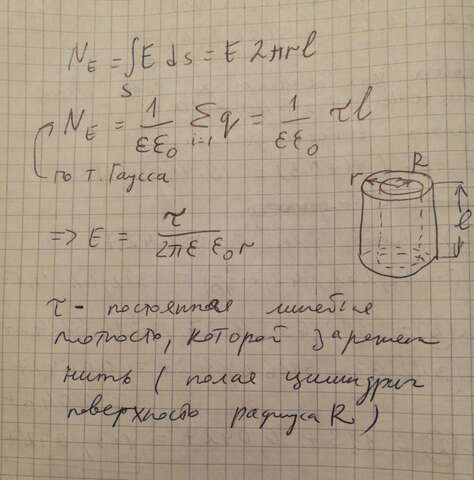 N_E = ∫_S E ds = E 2πrl
N_E = 1/(εε₀) Σ_{i=1} q = 1/(εε₀) τl
по т. Гаусса
R
r
l
=> E = τ/(2πε ε₀ r)
τ - постоянная линейная
плотность, которой заряжен
нить (полая цилиндрич
поверхность радиуса R)